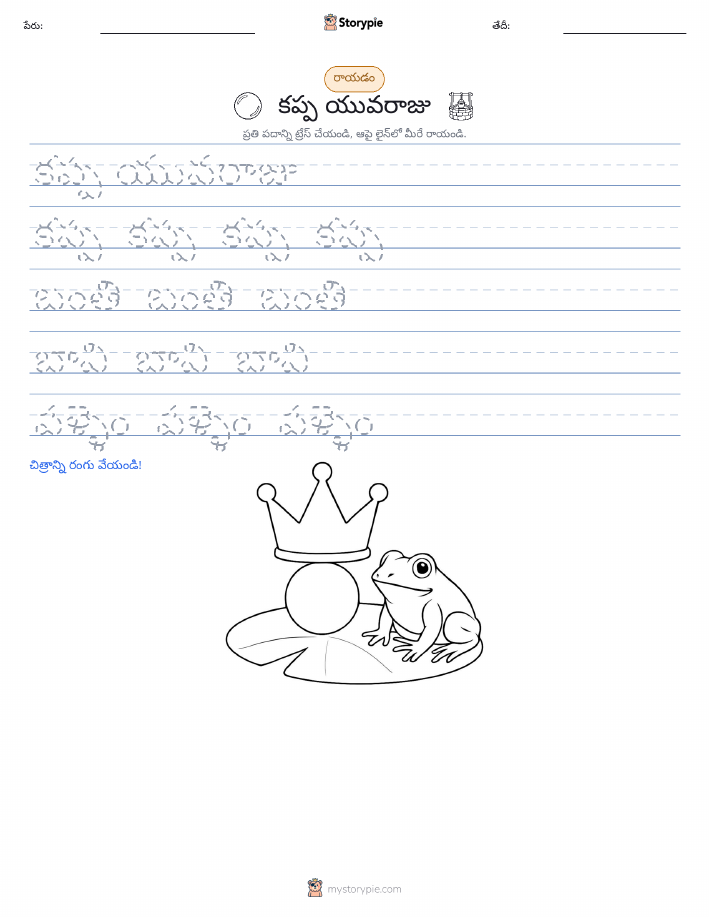 పేరు:
Storypie
తేదీ:
రాయడం
కప్ప యువరాజు
ప్రతి పదాన్ని ట్రేస్ చేయండి, ఆపై లైన్‌లో మీరే రాయండి.
కప్ప యువరాజు
కప్ప కప్ప కప్ప కప్ప
బంతి బంతి బంతి
బావి బావి బావి
పళ్ళెం పళ్ళెం పళ్ళెం
చిత్రాన్ని రంగు వేయండి!
mystorypie.com